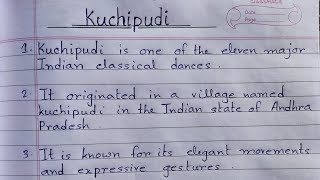 Kuchipudi
1. Kuchipudi is one of the eleven major
Indian classical dances.
2. It originated in a village named
kuchipudi in the Indian state of Andhra
Pradesh.
3. It is known for its elegant movements
and expressive gestures.